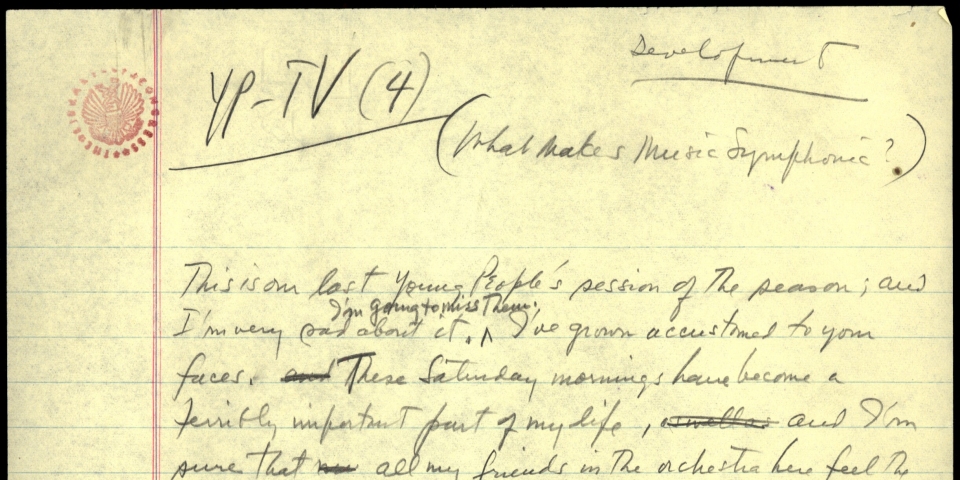 Development
YP-TV (4)
(What Makes Music Symphonic?)
This is our last Young People's session of the season; and
I'm going to miss them.
I'm very sad about it. ^ I've grown accustomed to your
faces. and These Saturday mornings have become a
terribly important part of my life, as well as and I'm
sure that all my friends in the orchestra here feel the